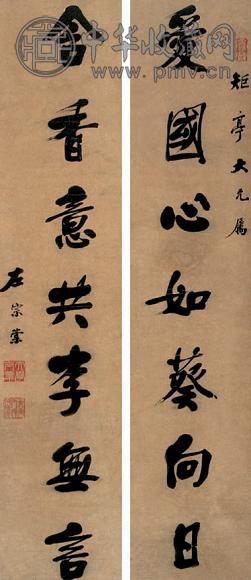 中华收藏网
www.pmv.cn
矩亭大兄属
愛國心如葵向日
含香意共李無言
左宗棠